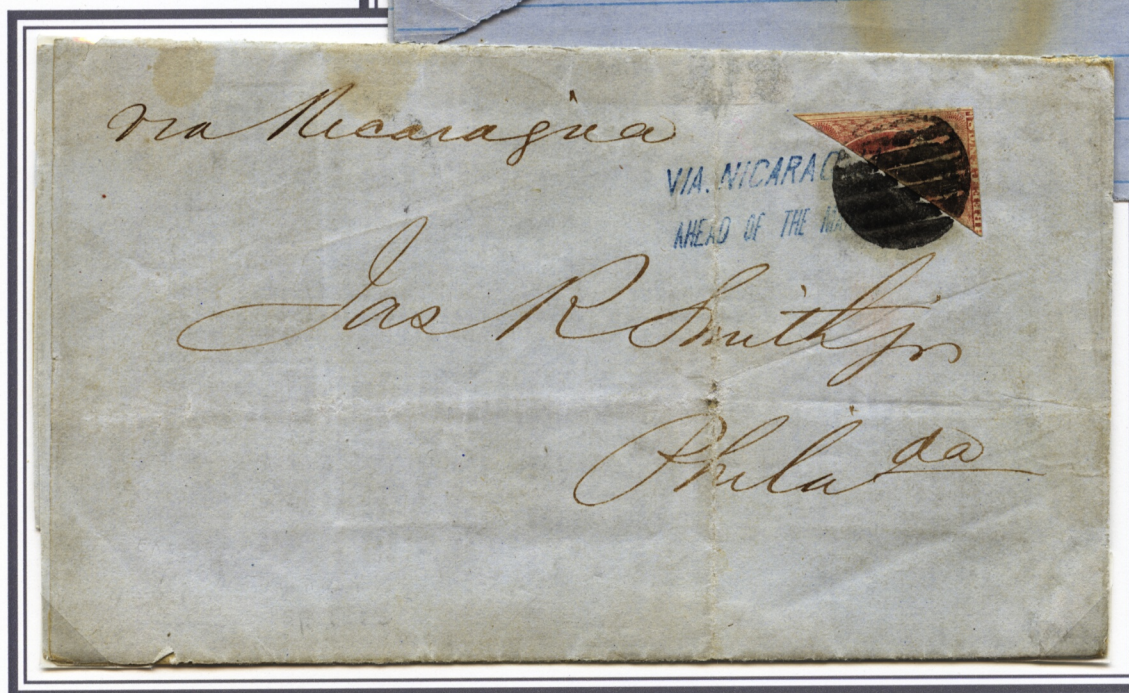 via Nicaragua
VIA. NICARAG
AHEAD OF THE MA
Jas R Smith jr
Phila da